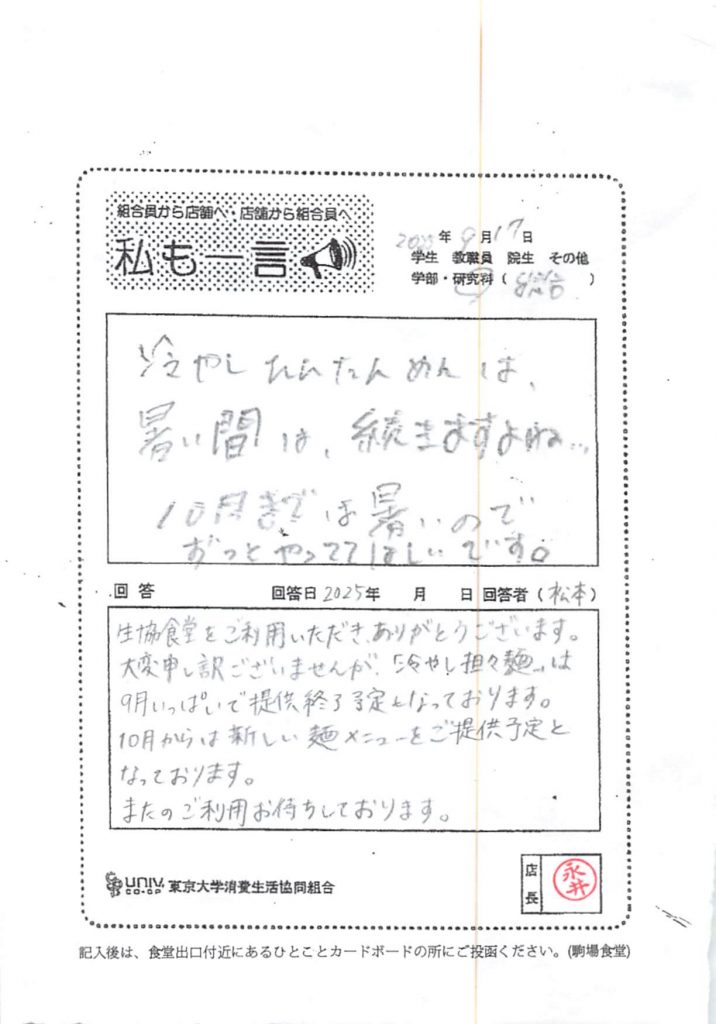 組合員から店舗へ・店舗から組合員へ
私も一言
年 9月17日
学生 教職員 院生 その他
学部・研究科 ( )
冷やしたんたんめんは、
暑い間は、続きますよね…
10月までは暑いので
ずっとやっててほしいです。
回答 回答日 2025年 月 日 回答者 (松本)
生協食堂をご利用いただき、ありがとうございます。
大変申し訳ございませんが、「冷やし担々麺」は
9月いっぱいで提供終了予定となっております。
10月からは新しい麺メニューをご提供予定と
なっております。
またのご利用お待ちしております。
UNIV. CO-OP 東京大学消費生活協同組合
店長 永井
記入後は、食堂出口付近にあるひとことカードボードの所にご投函ください。(駒場食堂)